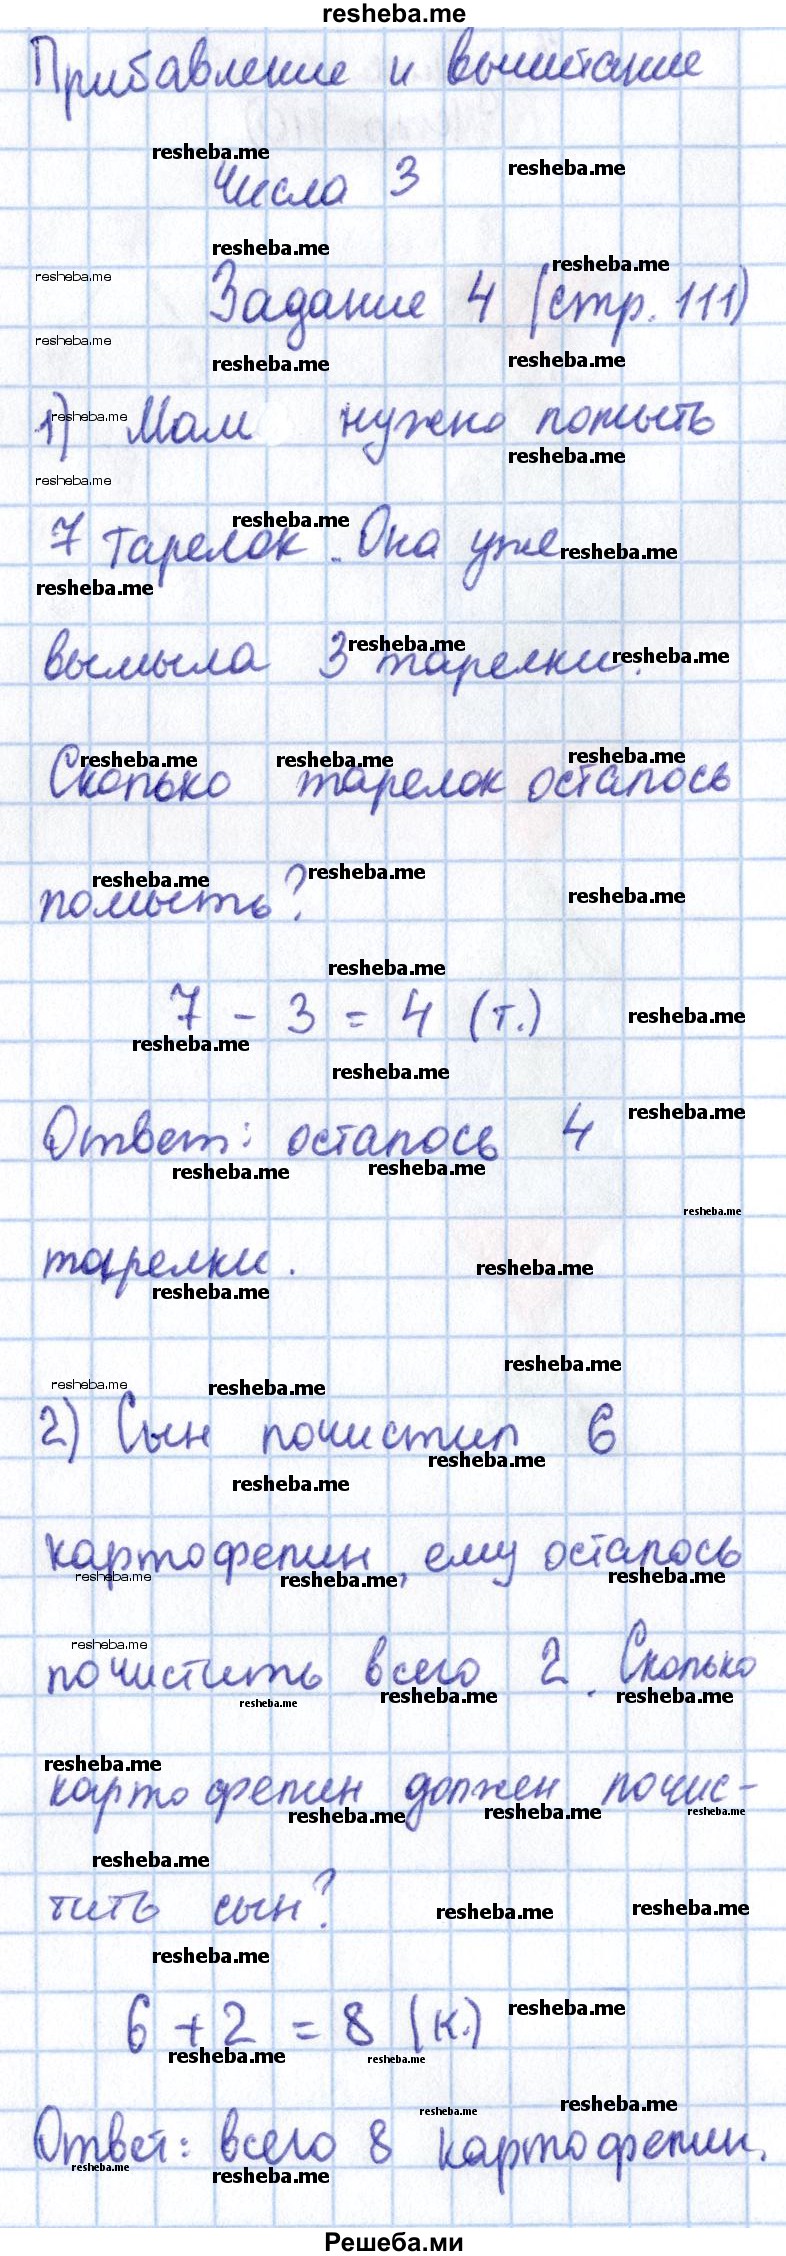 resheba.me
Прибавление и вычитание
Числа 3
Задание 4 (стр. 111)
1) Мам нужно помыть
7 тарелок. Она уже
вымыла 3 тарелки.
Сколько тарелок осталось
помыть?
7 - 3 = 4 (т.)
Ответ: осталось 4
тарелки.
2) Сын почистил 6
картофелин, ему осталось
почистить всего 2. Сколько
картофелин должен почис-
тить сын?
6 + 2 = 8 (к.)
Ответ: всего 8 картофелин.
Решеба.ми